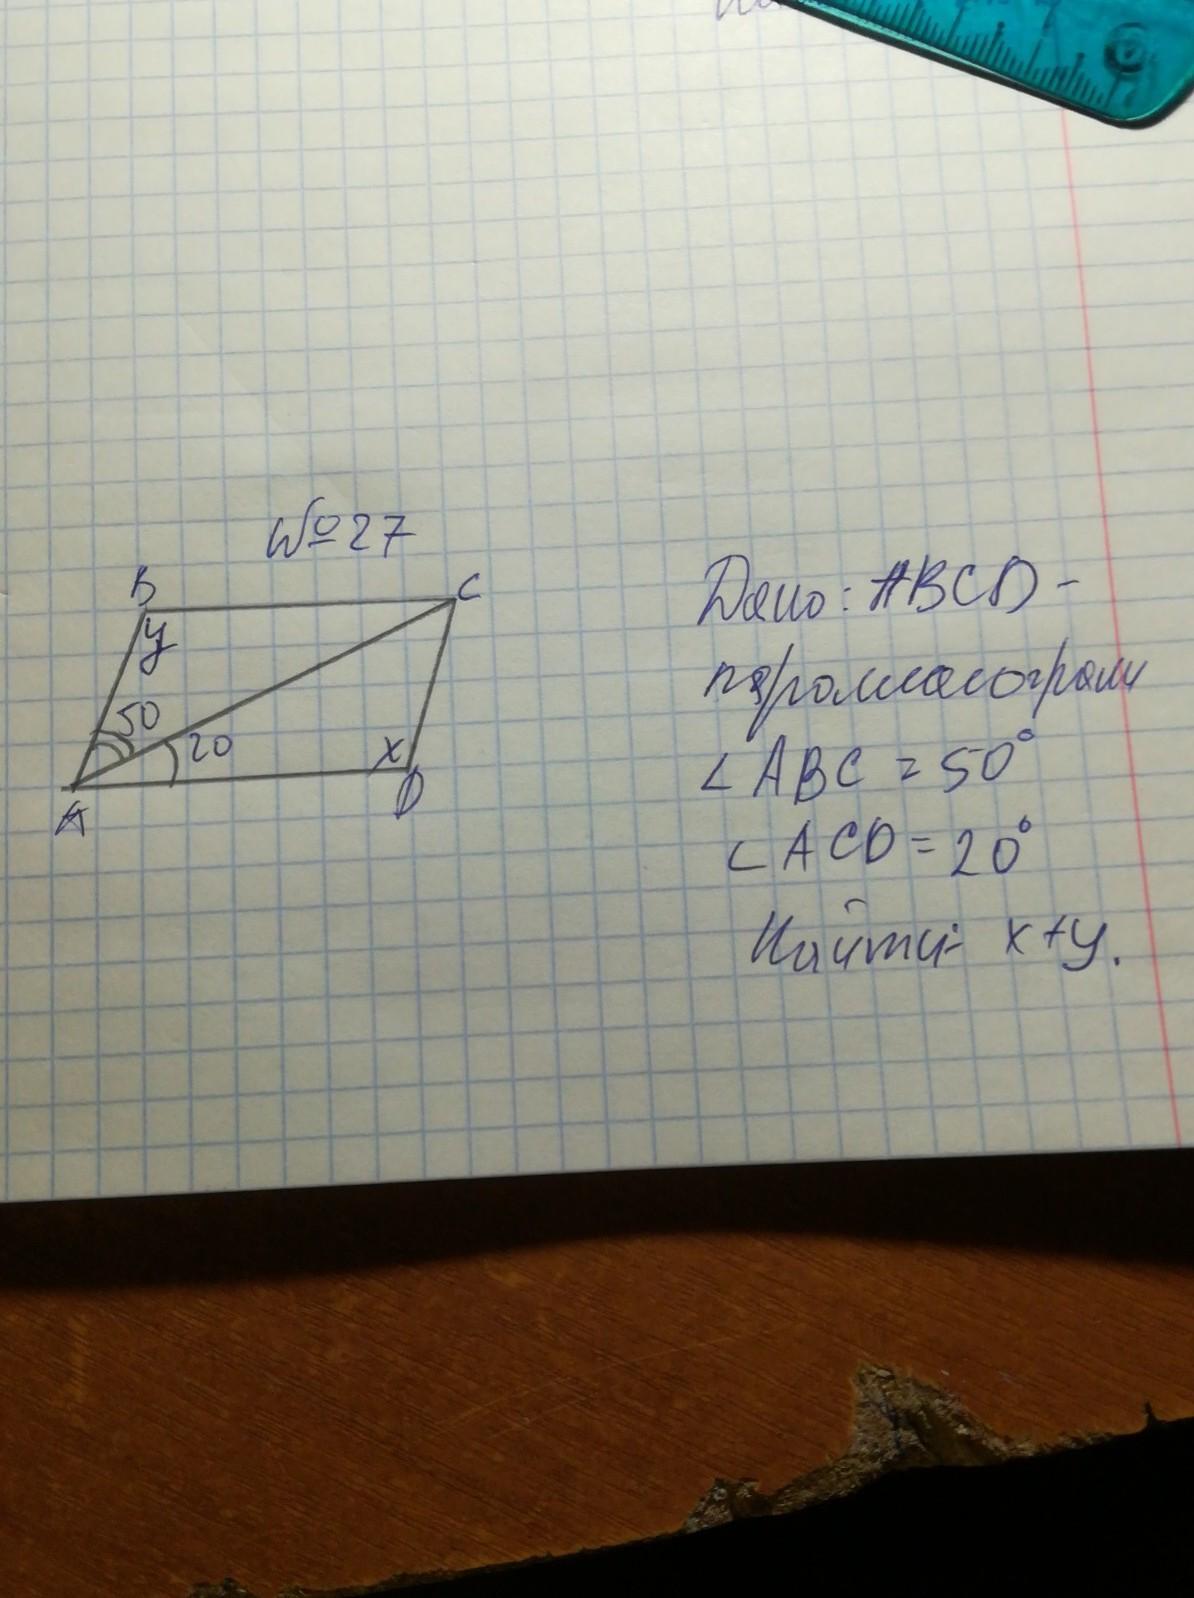 №27
B
C
y
50
20
x
A
D
Дано: ABCD -
параллелограмм
∠ABC = 50°
∠ACD = 20°
Найти: x+y.